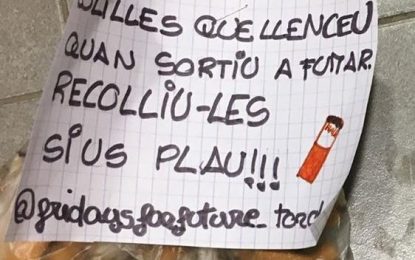 QUE LLENCEU
QUAN SORTIU A FUMAR.
RECOLLIU-LES
SIUS PLAU!!!
@fridaysforfuture_